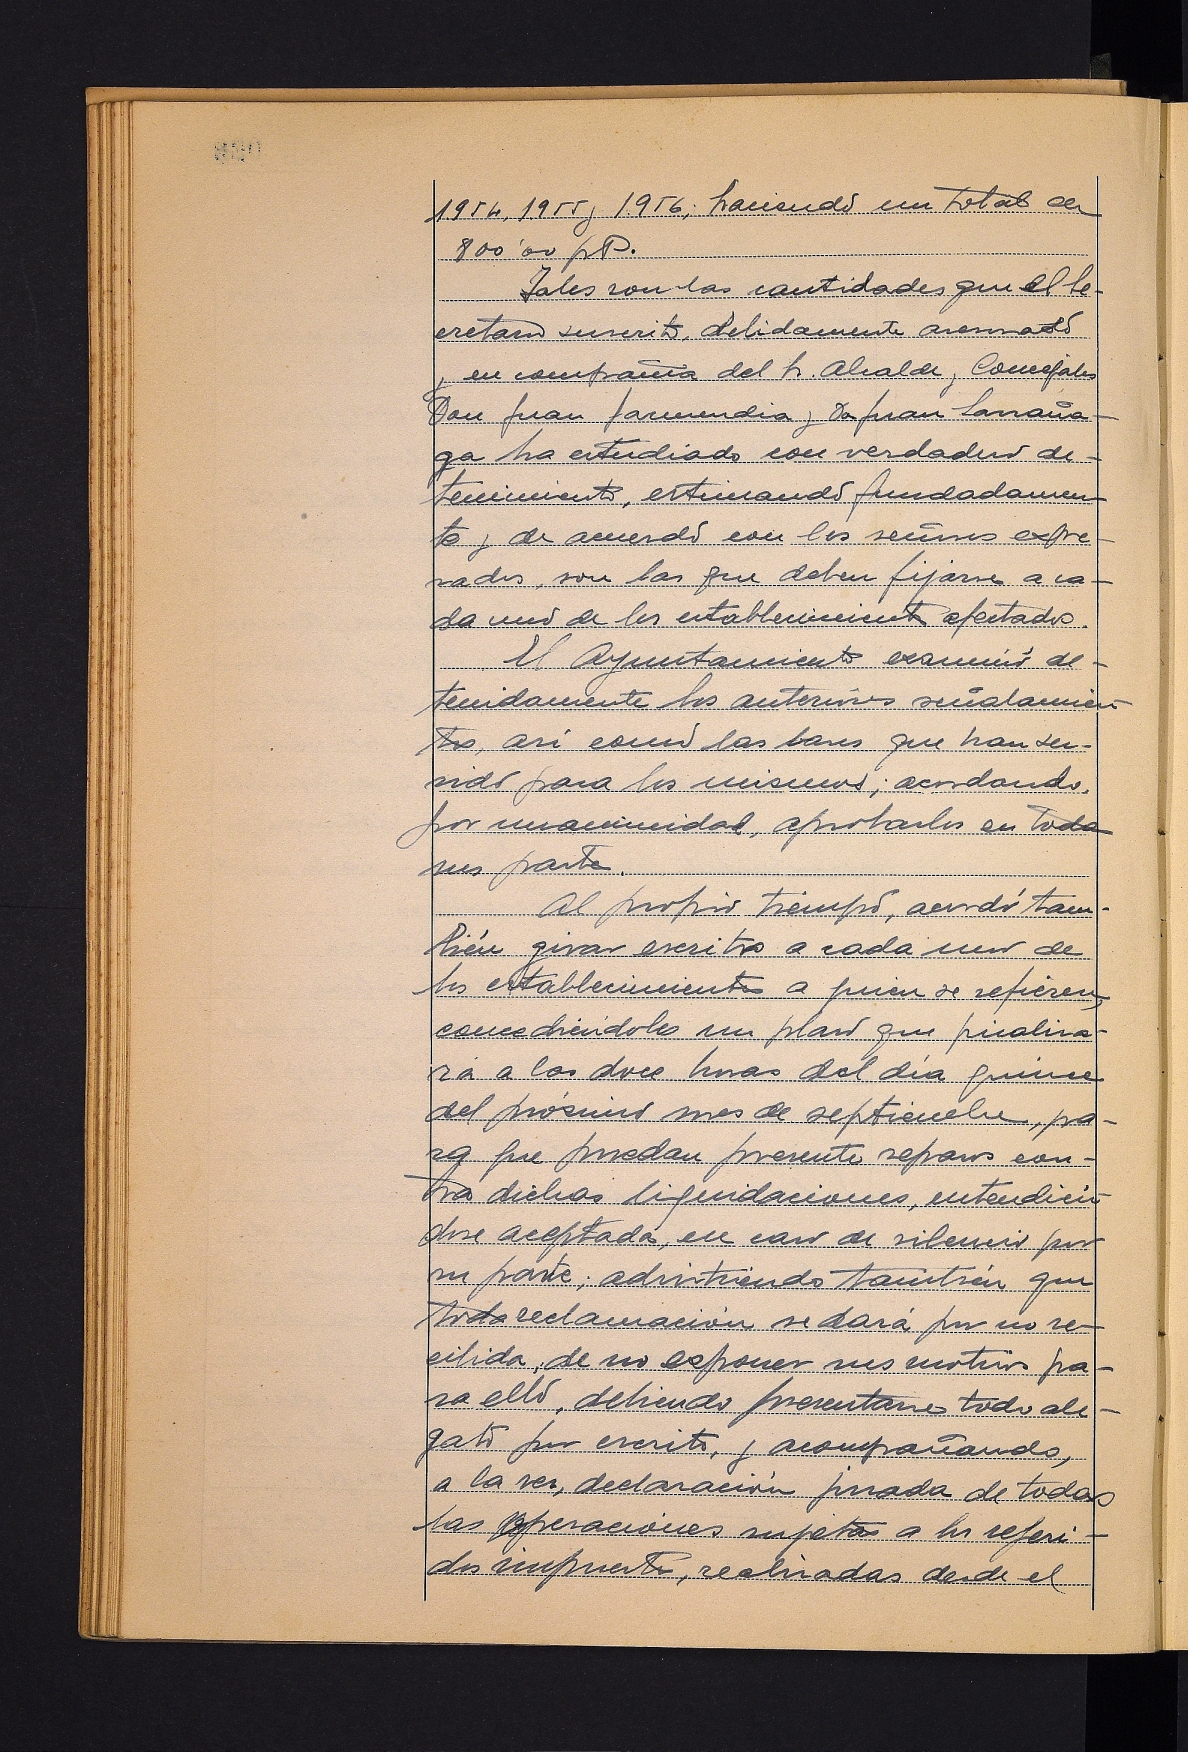 1954, 1955 y 1956; haciendo un total de
800'00 pts.
Tales son las cantidades que el Se-
cretario suscrito, debidamente asesorado
y en compañia del Sr. Alcalde y Concejales
Don Juan y Dn Juan Larraña-
ga ha estudiado con verdadero de-
tenimiento, estimando fundadamen
te y de acuerdo con los señores expre-
sados, son las que deben fijarse a ca-
da uno de los establecimientos afectados.
El Ayuntamiento examinó de-
tenidamente los anteriores señalamien
tos, asi como las bases que han ser-
vido para los mismos; acordando,
por unanimidad, aprobarlos en todas
sus partes.
Al propio tiempo, acordó tam-
bién girar escritos a cada uno de
los establecimientos a quien se refieren,
concediéndoles un plazo que finaliza-
rá a las doce horas del día quince
del próximo mes de septiembre, pa-
ra que puedan presente reparos con-
tra dichas liquidaciones, entendién
dose aceptada, en caso de silencio por
su parte; advirtiendo también que
toda reclamación se dará por no re-
cibida, de no exponer sus motivos pa-
ra ello, debiendo presentarse todo ale-
gato por escrito, y acompañando,
a la vez, declaración jurada de todas
las operaciones sujetas a los referi-
dos impuestos, realizadas desde el